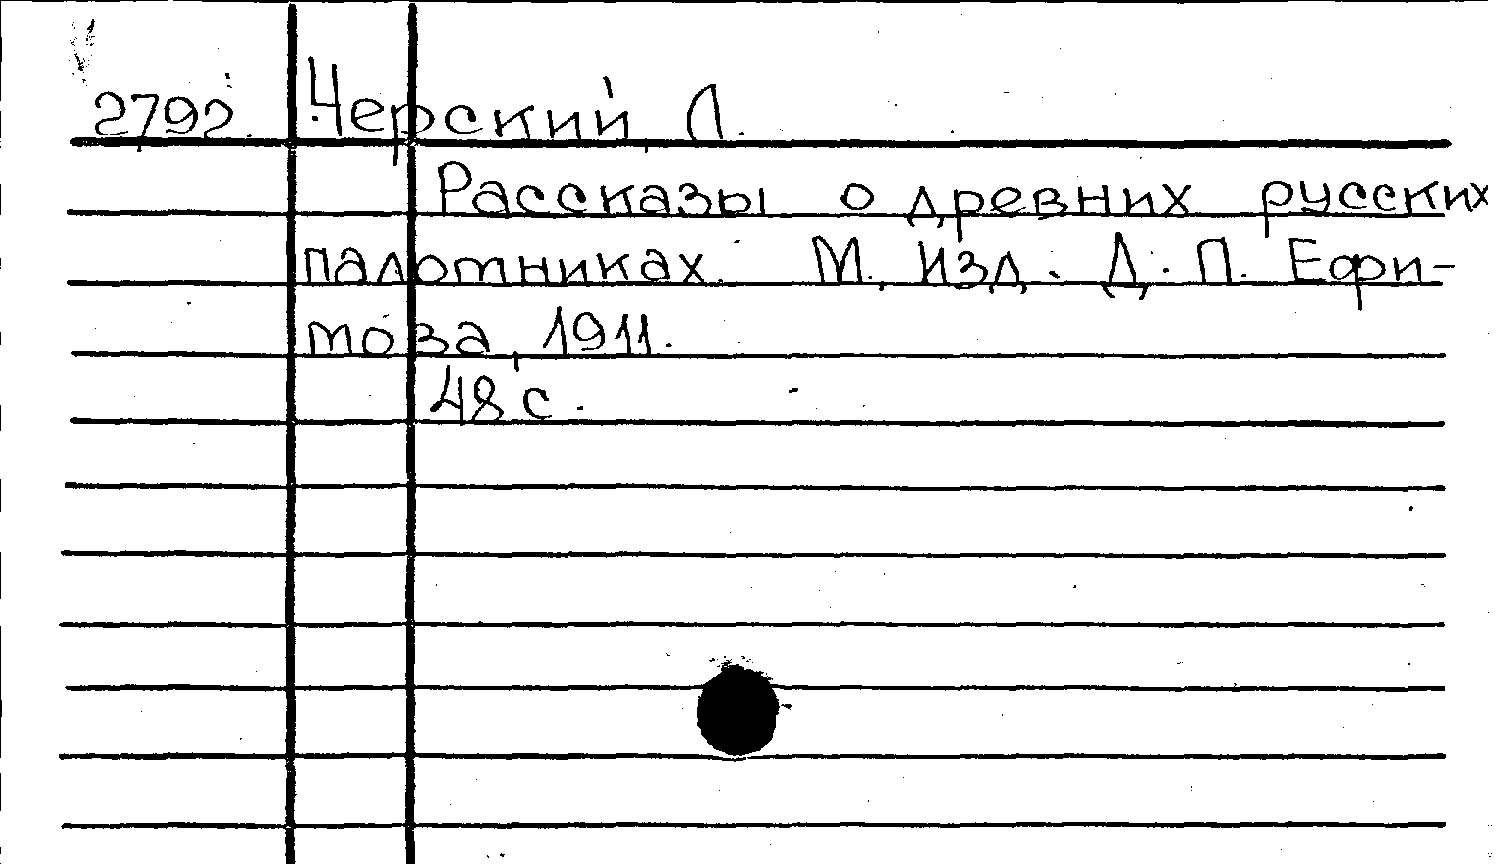 2792. Черский, Л.
Рассказы о древних русских
палотниках. М. Изд. Д. П. Ефи-
мова, 1911.
48 с.